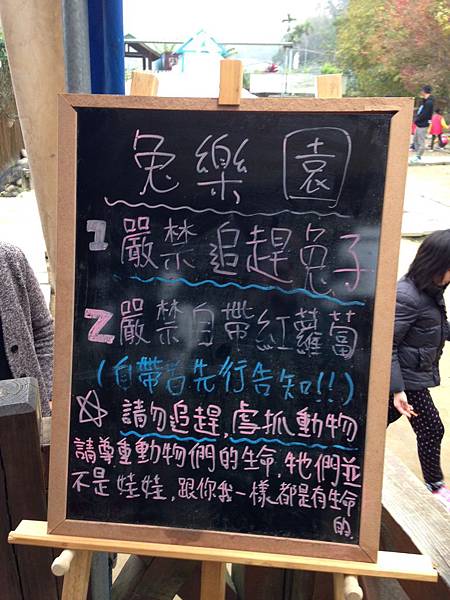 兔樂園
1 嚴禁追趕兔子
2 嚴禁自帶紅蘿蔔
(自帶者先行告知!!)
☆ 請勿追趕,虐抓動物
請尊重動物們的生命,牠們並
不是娃娃,跟你我一樣都是有生命
的.